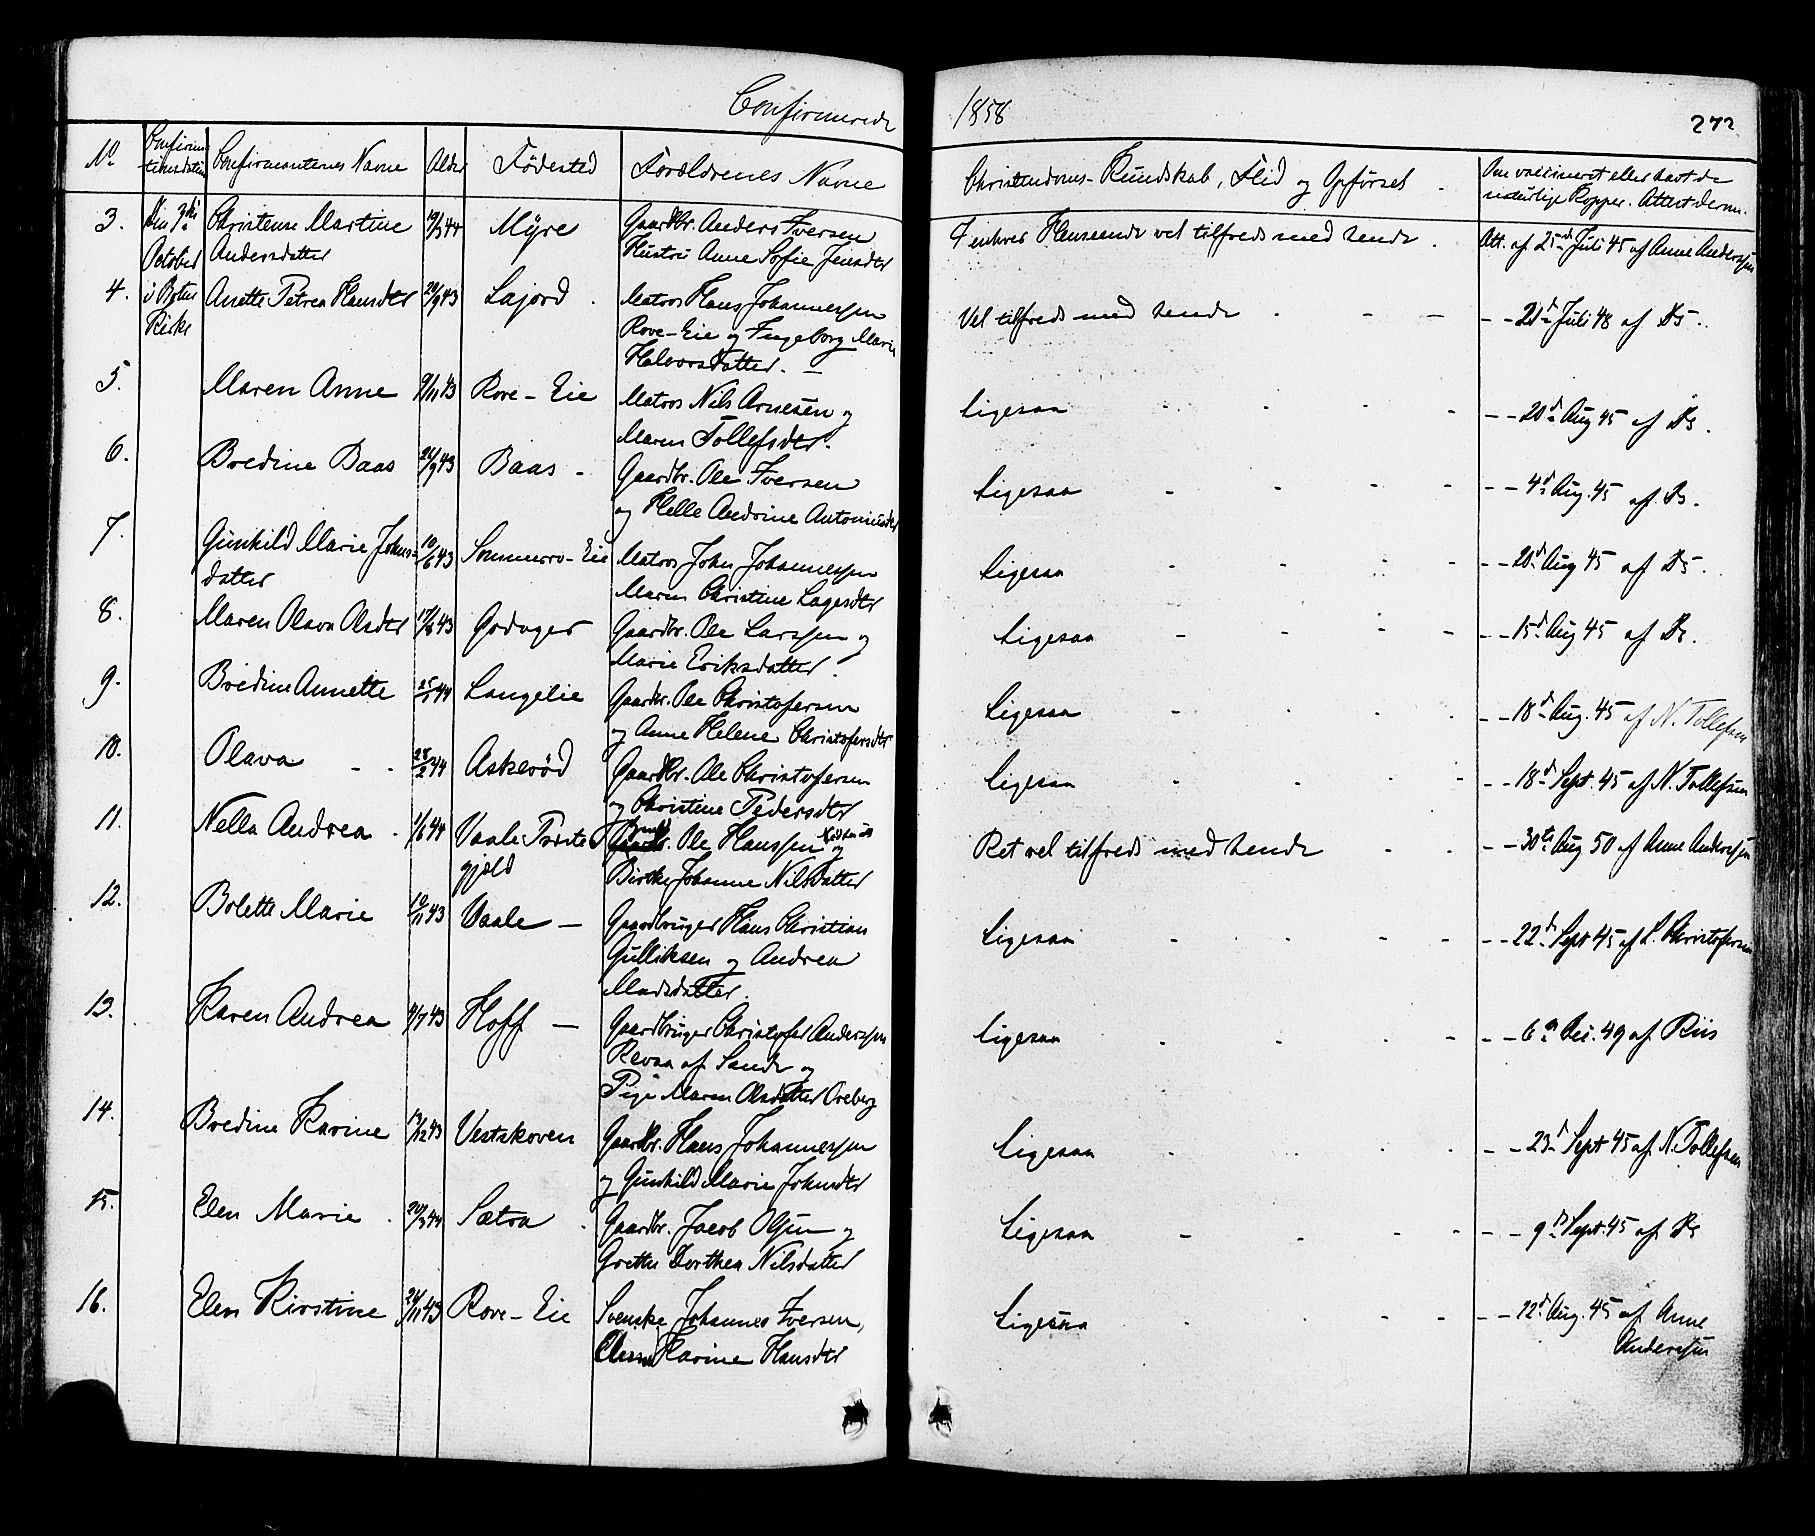 Confirmerede 1858 272
No Confirmationsdatum Confirmantenes Navne Alder Fødested Forældrenes Navne Christendoms-Kundskab, Flid og Opførsel Om vaccineret eller havt de naturlige Kopper. Attest derom.
3. Den 3die October Christense Martine Andersdatter 19/3 44 Myre Gaardbr. Anders Iversen
Hustru Anne Sofie Jensdtr I enhver Henseende vel tilfreds med hende. Att. af 25de Juli 45 af Anne Anderssen
4. i Botne Kirke Anette Petrea Hansdtr 24/9 43 Lajord. Matros Hans Johannessen
Rove-Eie og Ingeborg Marie
Halvorsdatter. Vel tilfreds med hende - - - 21d Juli 48 af Ds.
5. Maren Anne 9/11 43 Rove-Eie Matros Nils Arnesen og
Maren Tollefsdtr. Ligesaa - - 20d Aug 45 af Ds.
6. Bredine Baas 24/9 43 Baas - Gaardbr. Ole Iversen
og Helle Andrine Antoniusdtr Ligesaa - - 4d Aug. 45 af Ds.
7. Gunhild Marie Johnsdatter 10/6 43 Sommerro-Eie Matros John Johannessen
Maren Christine Lagesdtr Ligesaa - - 20d Aug 45 af Ds.
8. Maren Olava Olsdtr 17/8 43 Goduger Gaardbr. Ole Larssen og
Marie Eriksdatter. Ligesaa - - 15d Aug 45 af Ds.
9. Bredine Annette 25/1 44 Langelie Gaardbr. Ole Christofersen
og Anne Helene Christofersdtr Ligesaa - - 18d Aug. 45 af N. Tollefsen
10. Olava - - 28/2 44 Askerød Gaardbr. Ole Christofersen
og Christine Pedersdtr Ligesaa - - 18d Sept. 45 af N. Tollefsen
11. Nella Andrea. 1/6 44 Vaale Præstegjeld Ole Hanssen og
Birthe Johanne Nilsdatter Ret vel tilfreds med hende - - 30te Aug 50 af Anne Anderssen
12. Bolette Marie 19/11 43 Vaale - Gaardbruger Hans Christian
Gulliksen og Andrea
Madsdatter. Ligesaa - - 22d Sept 45 af L. Christofersen
13. Karen Andrea 4/7 43 Hoff - Gaardbruger Christofer Anderssen
Revaa af Sande og
Pige Maren Olsdatter Oreberg Ligesaa - - 6te Dec. 49 af Riis
14. Bredine Karine 13/12 43 Vestskoven Gaardbr. Hans Johannessen
og Gunhild Marie Johnsdtr Ligesaa - - 23d Sept 45 af N. Tollefsen
15. Elen Marie. 20/3 44 Sætra. Gaardbr. Jacob Olsen og
Grethe Dorthea Nilsdatter Ligesaa - - 9d Sept. 45 af Ds
16. Elen Kirstine 24/11 43 Rove-Eie Svenske Johannes Iversen,
Karine Hansdtr Ligesaa - - 12d Aug. 45 af Anne
Anderssen